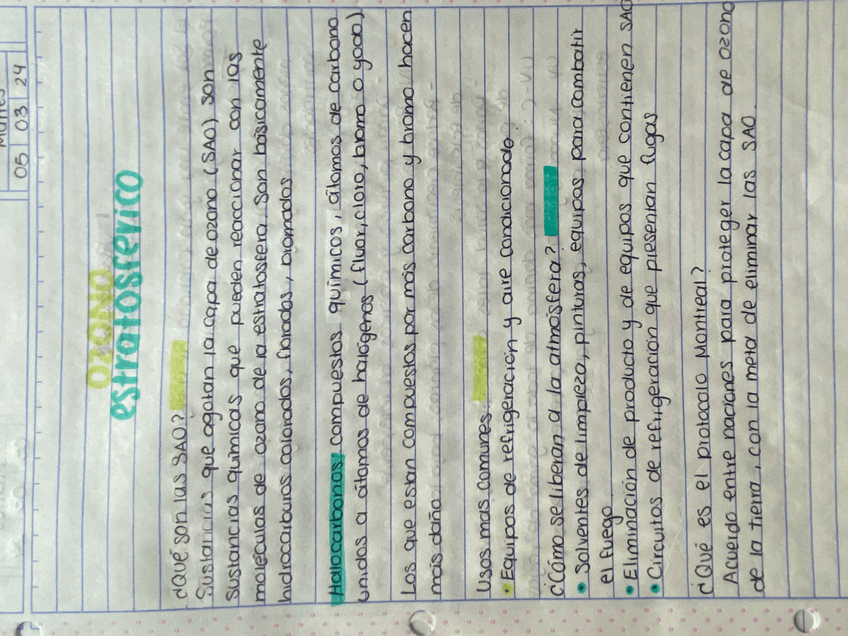 Martes
05 03 24
OZONO
estratosferico
¿Qué son las SAO?
Sustancias que agotan la capa de ozono (SAO) son
sustancias químicas que pueden reaccionar con las
moléculas de ozono de la estratosfera. Son básicamente
hidrocarburos colorados, florados, bromados
Halocarbonos, compuestos químicos, átomos de carbono
unidos a átomos de halógenos (fluor, cloro, bromo o yodo)
Los que estan compuestos por más carbono y bromo hacen
más daño
Usos mas comunes
• Equipos de refrigeración y aire condicionado.
¿Cómo se liberan a la atmosfera?
• Solventes de limpieza, pinturas, equipos para combatir
el fuego
• Eliminación de producto y de equipos que contienen SAO
• Circuitos de refrigeración que presentan fugas
¿Qué es el protocolo Montreal?
Acuerdo entre naciones para proteger la capa de ozono
de la tierra, con la meta de eliminar las SAO.